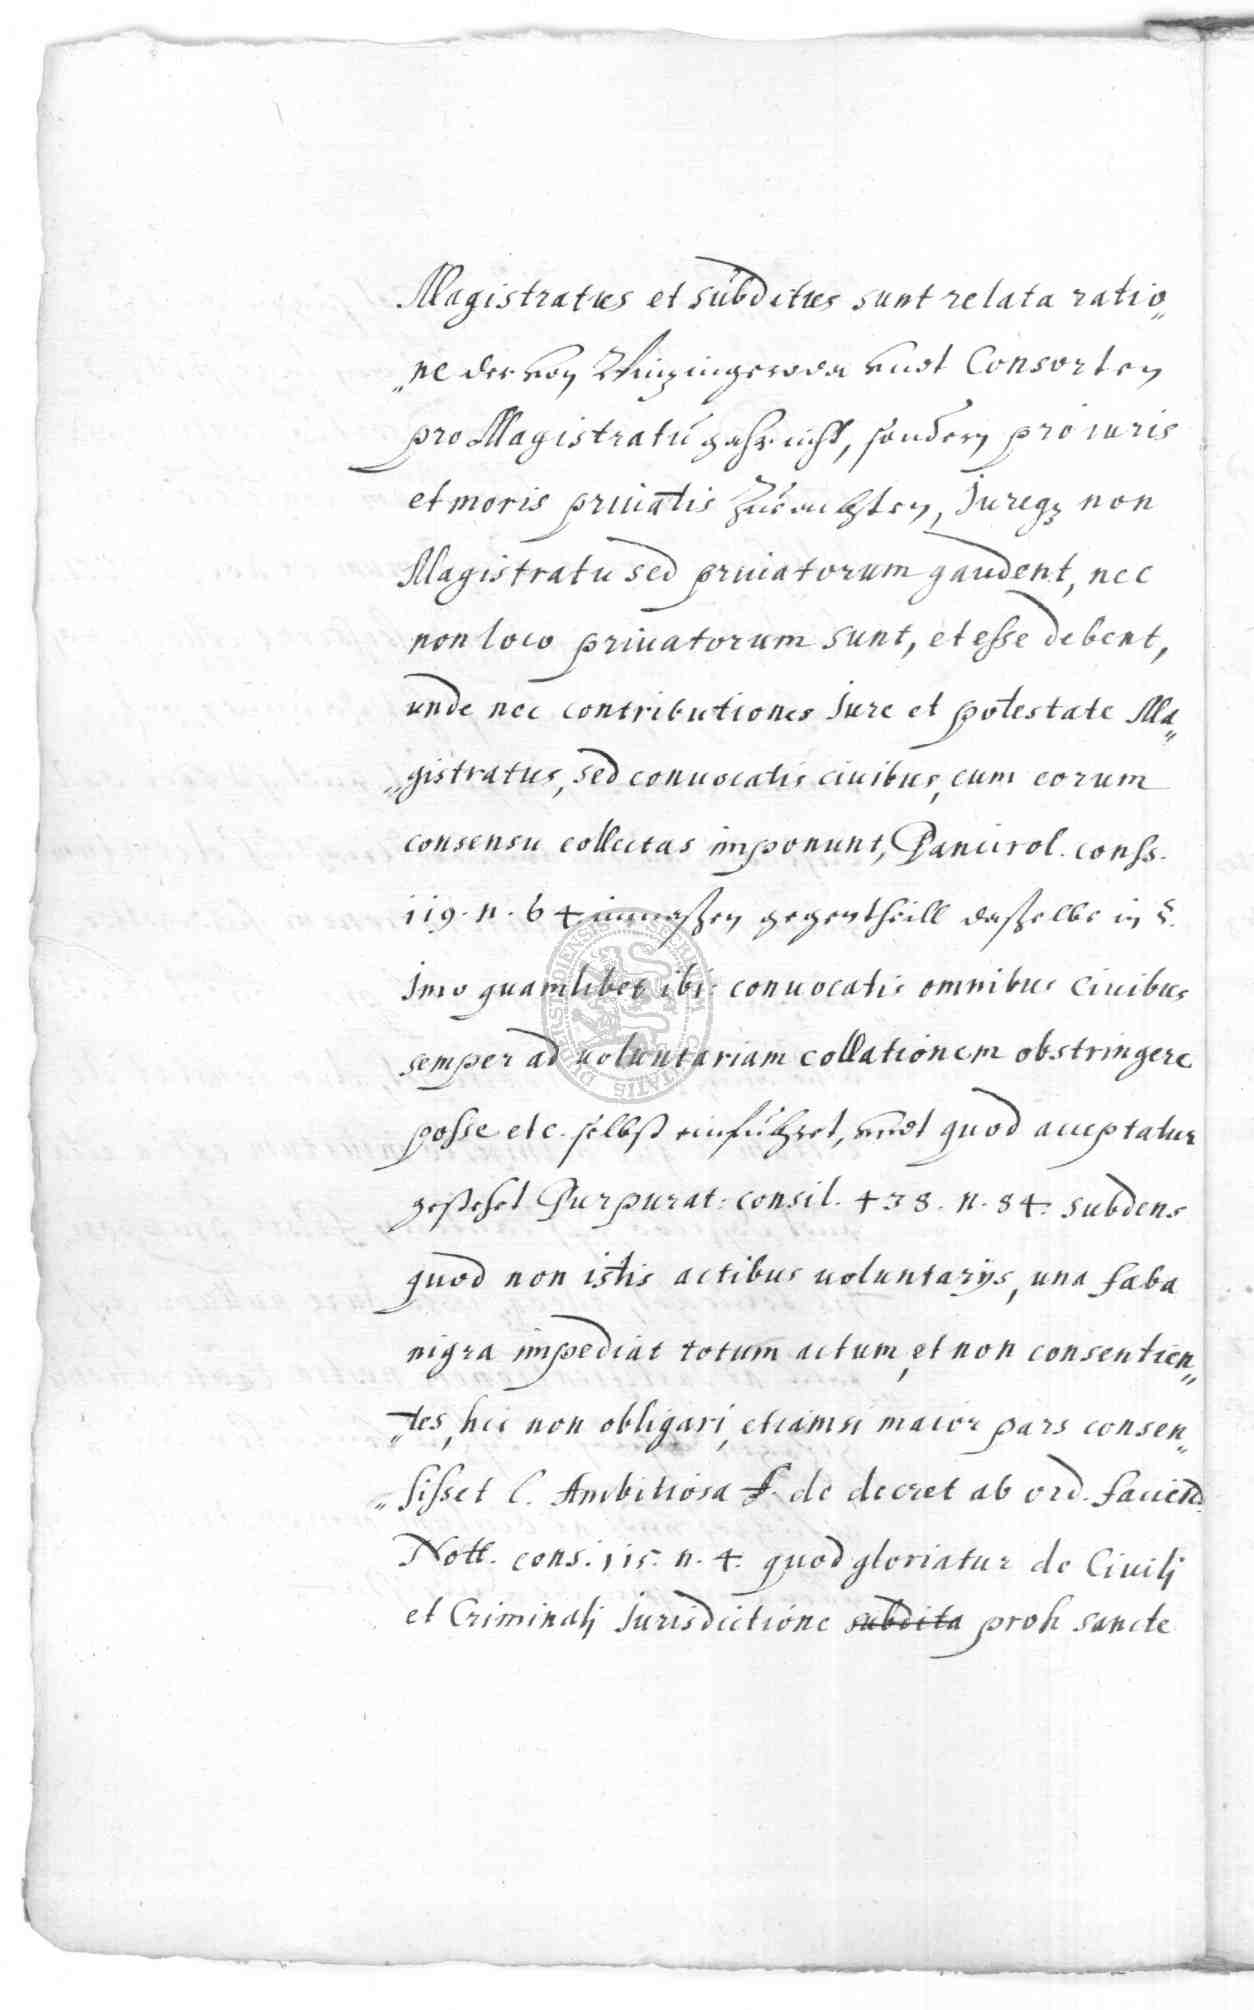 Magistratus et subditus sunt relata ratio„
„ne der von Wintzingeroda undt Consorten
pro Magistratu gahr nicht, sondern pro iuris
et moris priuatis zue achten, Jureq3 non
Magistratu sed priuatorum gaudent, nec
non loco priuatorum sunt, et esse debent,
unde nec contributiones Jure et potestate Ma„
„gistratus, sed conuocatis ciuibus, cum eorum
consensu collectas imponunt, Pancirol. conss.
119. n. 64 inmaßen gegentheill daßelbe in §.
Jmo quamlibet ibi: conuocatis omnibus Ciuibus
semper ad uoluntariam collationem obstringere
posse etc. selbst einführet, undt quod acceptatur
gestehet Purpurat: consil. 438. n. 84. subdens
quod non istis actibus uoluntarijs, una faba
nigra impediat totum actum, et non consentien„
„tes, hic non obligari, etiamsi maior pars consen„
„sisset l. Ambitiosa ff. de decret ab ord. faciend.
Nott. cons. 115. n. 4. quod gloriatur de Ciuilj
et Criminalj Jurisdictione subdita proh sancte